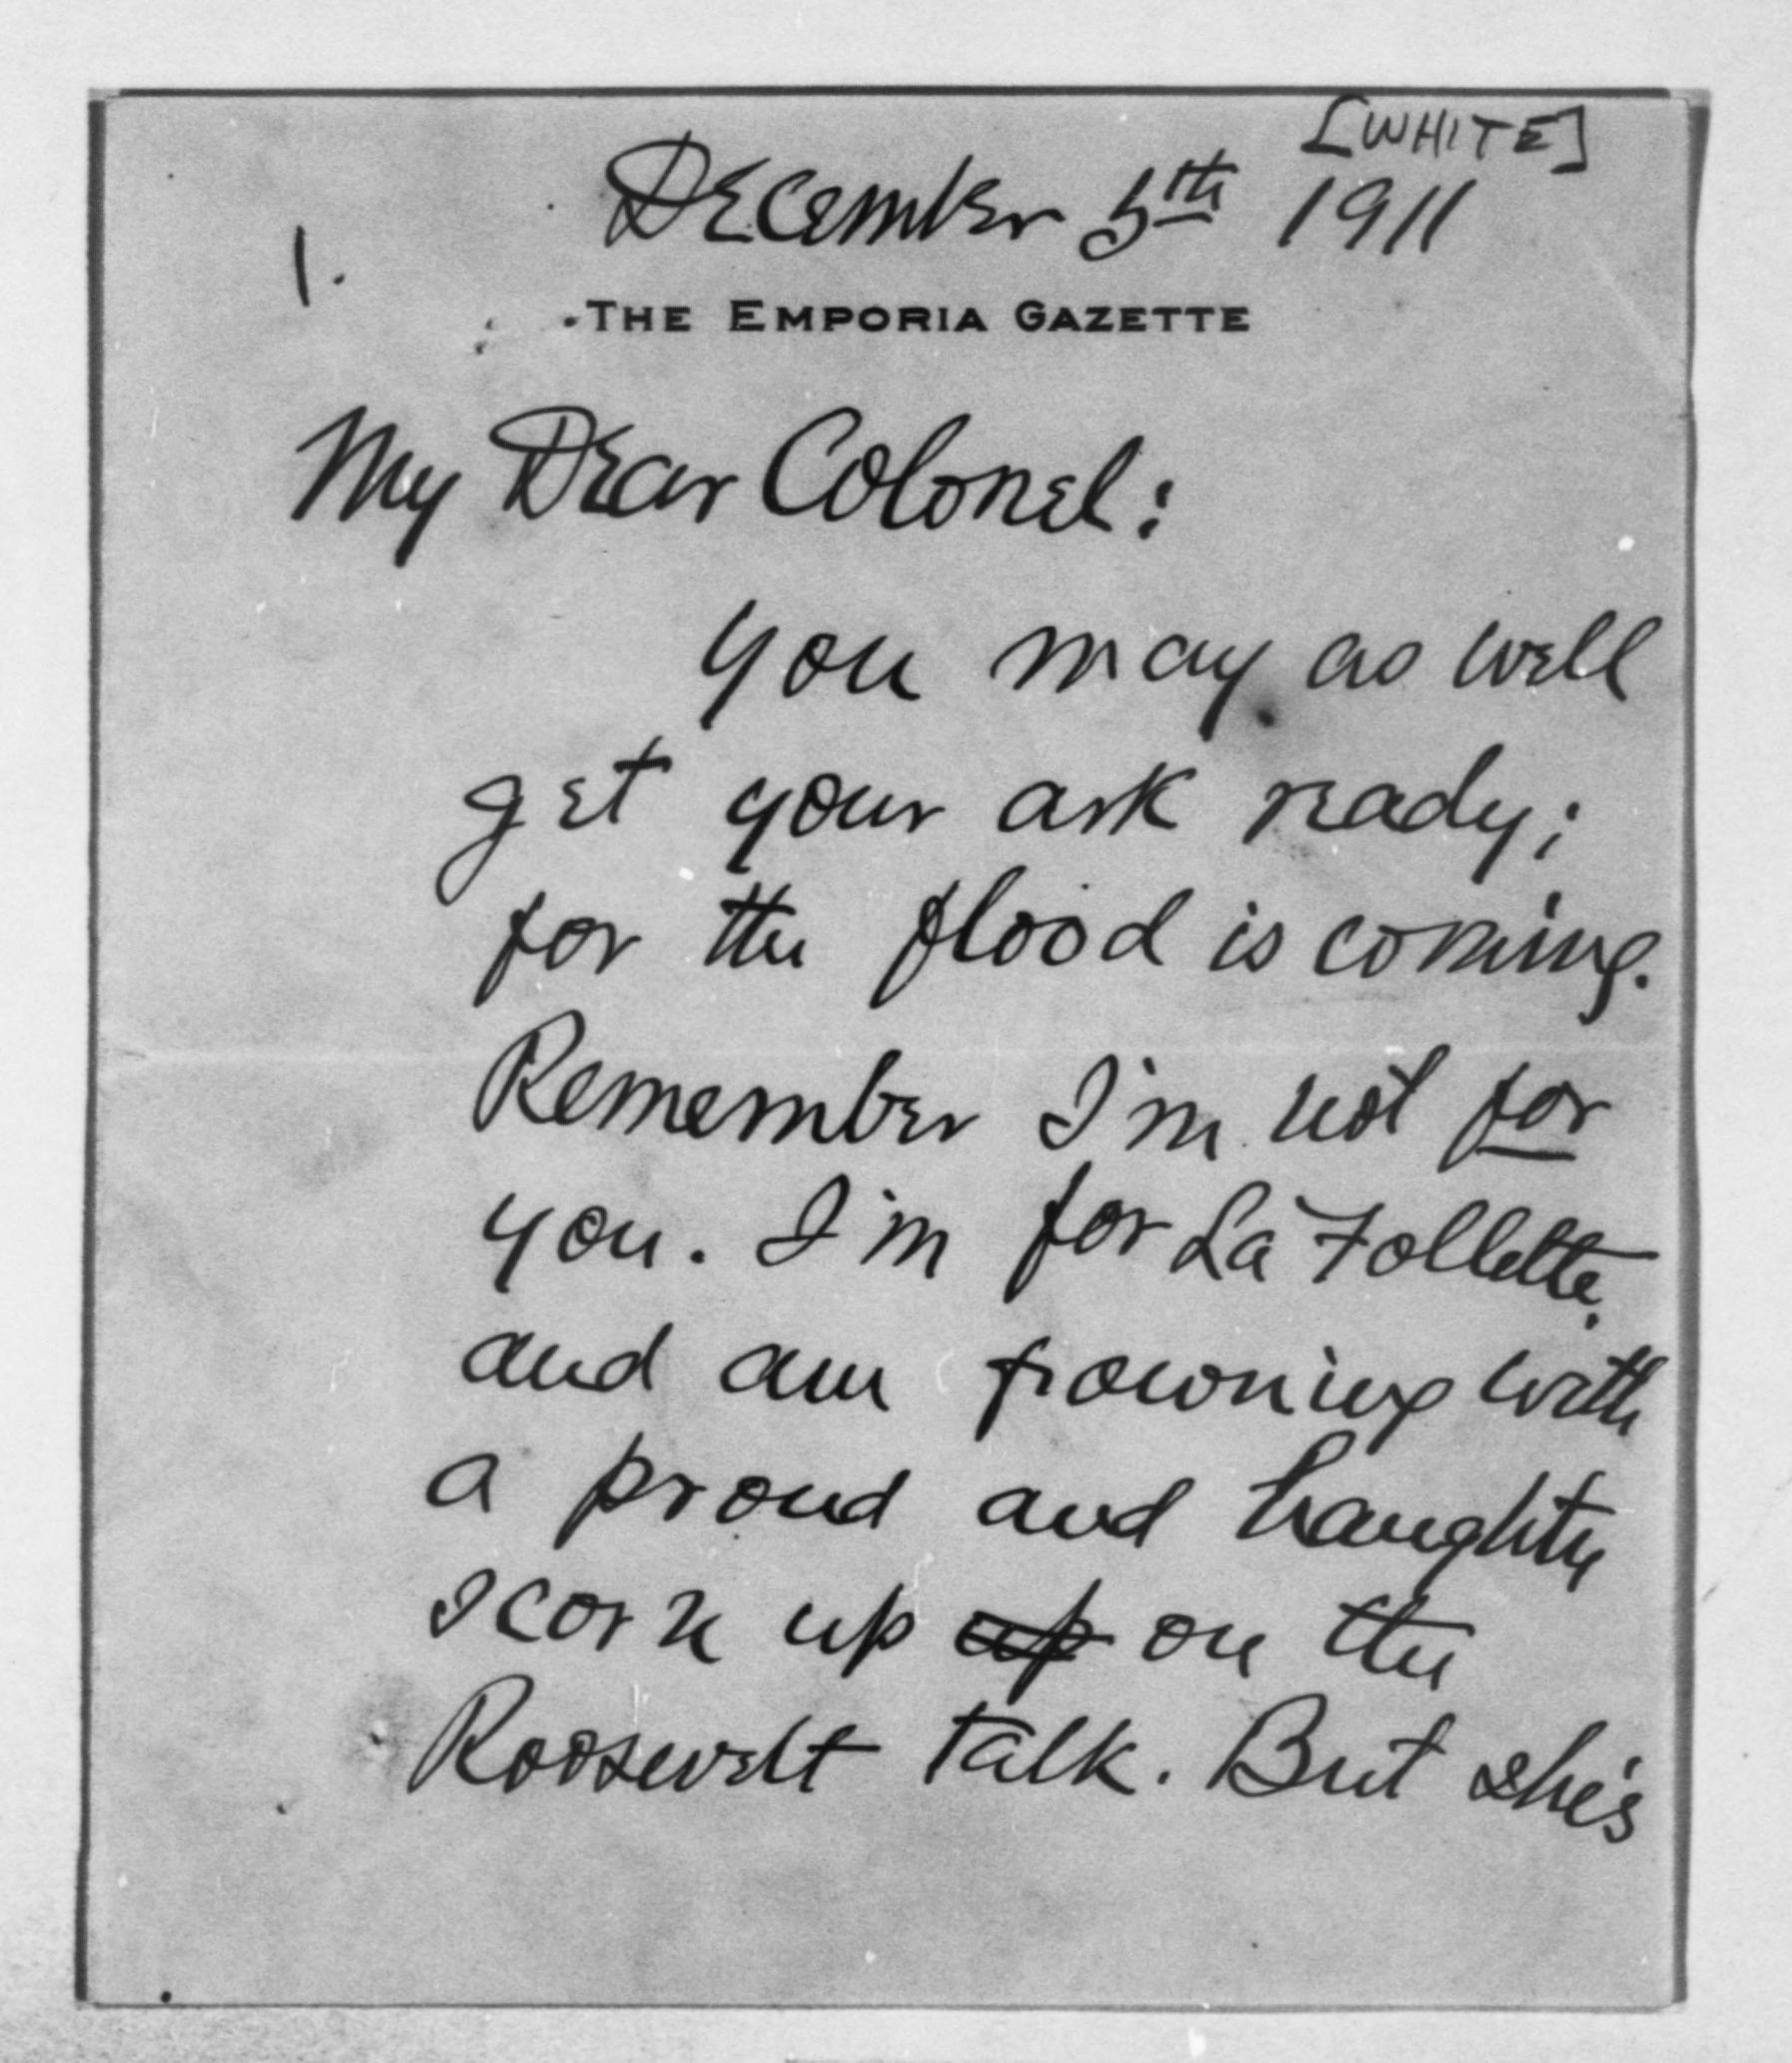 [WHITE]
December 5th 1911
1.
THE EMPORIA GAZETTE
My Dear Colonel:
You may as well
get your ark ready;
for the flood is coming.
Remember I'm not for
you. I'm for La Follette,
and am frowning with
a proud and haughty
scorn up up on the
Roosevelt talk. But she's